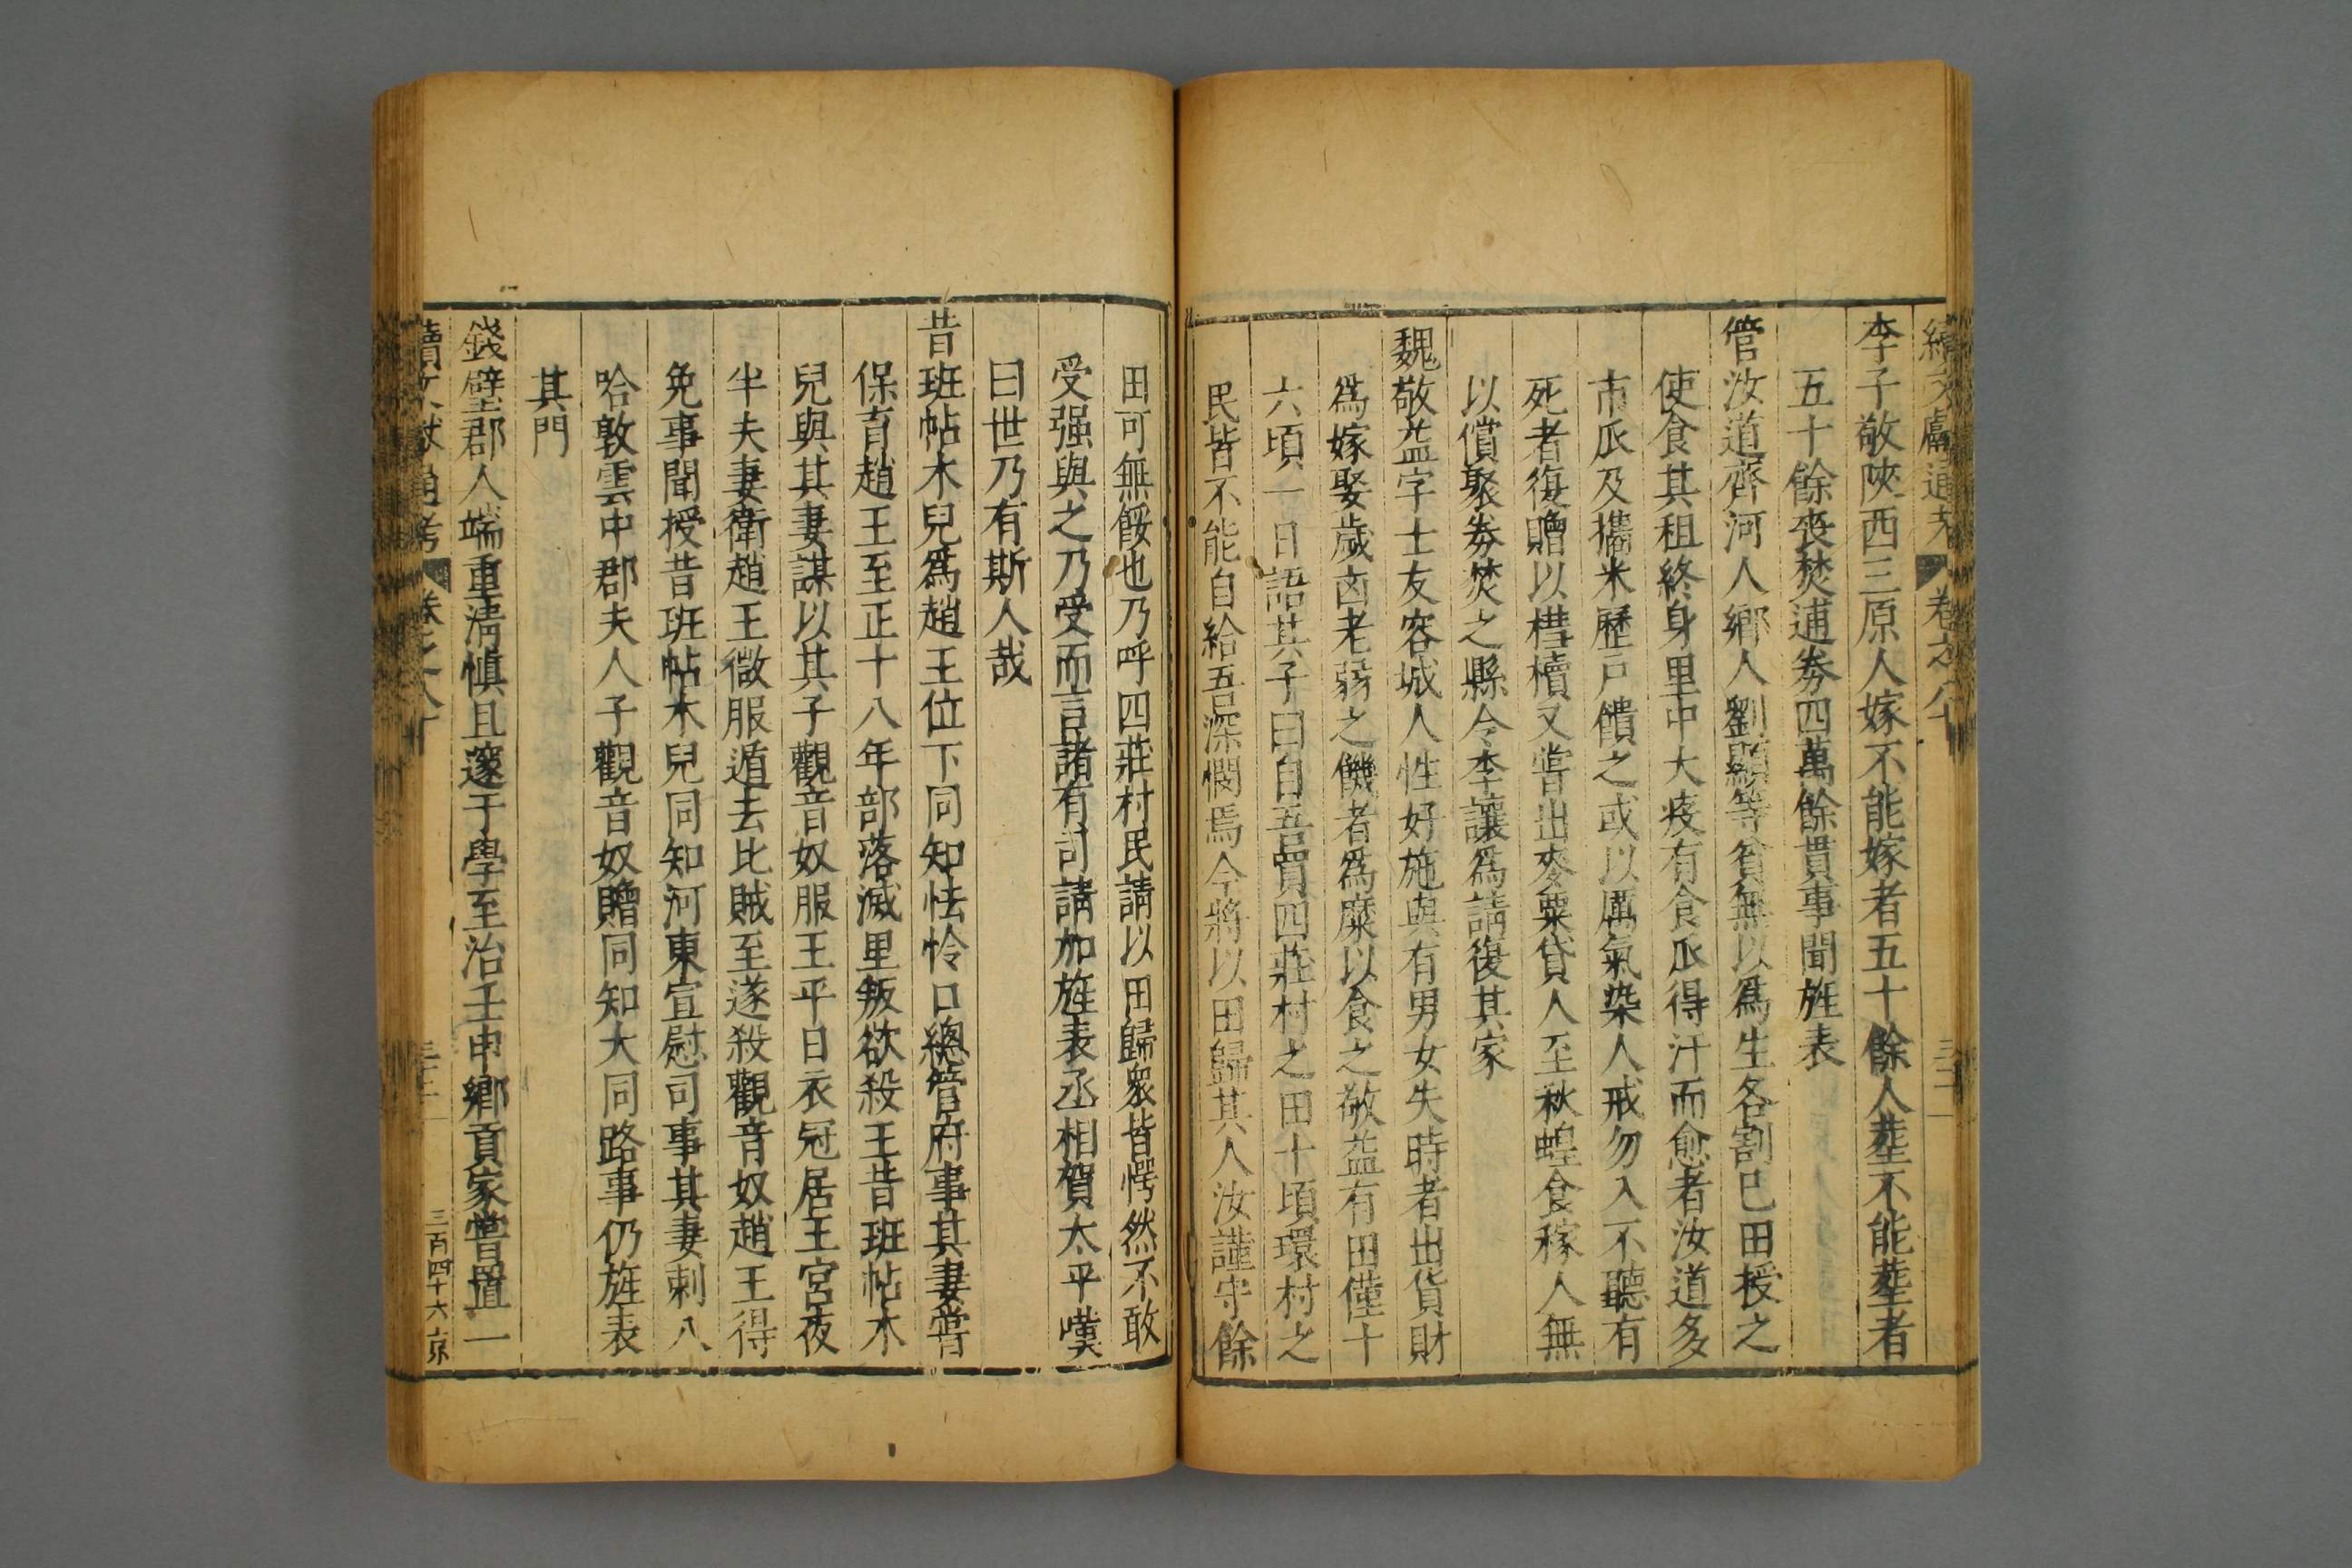 續文獻通考 卷之八十
李子敬陜西三原人嫁不能嫁者五十餘人塟不能塟者
五十餘喪焚逋券四萬餘貫事聞旌表
管汝道齊河人鄉人劉顯等貧無以爲生各割巳田授之
使食其租終身里中大疫有食瓜得汗而愈者汝道多
市瓜及攜米歷戸饋之或以厲氣染人戒勿入不聽有
死者復贈以槥櫝又嘗出麥粟貸人至秋蝗食稼人無
以償聚券焚之縣令李讓爲請復其家
魏敬益字士友容城人性好施與有男女失時者出貨財
爲嫁娶歲凶老弱之饑者爲糜以食之敬益有田僅十
六頃一日語其子曰自吾買四莊村之田十頃環村之
民皆不能自給吾深憫焉今將以田歸其人汝謹守餘
田可無餒也乃呼四莊村民請以田歸衆皆愕然不敢
受强與之乃受而言諸有司請加旌表丞相賀太平嘆
曰世乃有斯人哉
昔班帖木兒爲趙王位下同知怯怜口總管府事其妻嘗
保育趙王至正十八年部落滅里叛欲殺王昔班帖木
兒與其妻謀以其子觀音奴服王平日衣冠居王宮夜
半夫妻衛趙王微服遁去比賊至遂殺觀音奴趙王得
免事聞授昔班帖木兒同知河東宣慰司事其妻剌八
哈敦雲中郡夫人子觀音奴贈同知大同路事仍旌表
其門
錢璧郡人端重淸愼且邃于學至治壬申鄉貢家嘗置一
續文獻通考 卷之八十 三百四十六 京